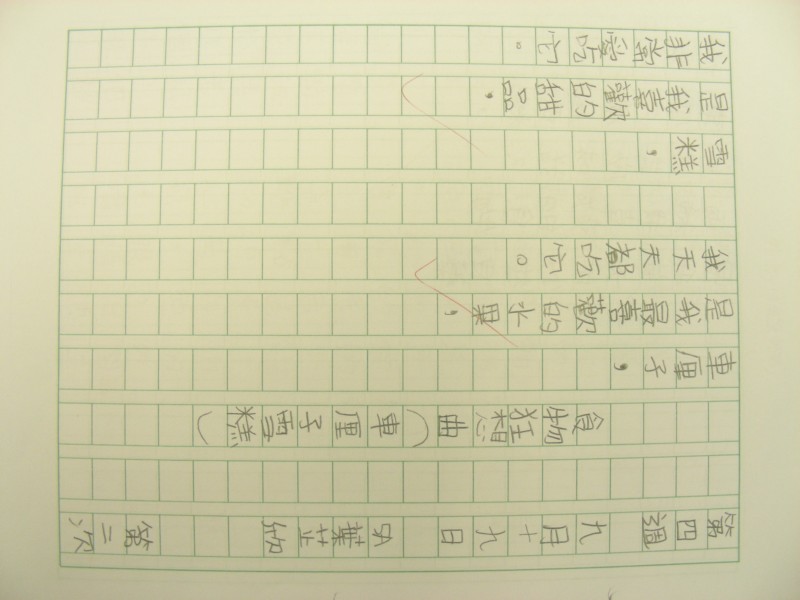 第四週 九月十九日 9葉芷 第二次
食物狂想曲(車厘子雪糕)
車厘子,
是我最喜歡的水果,
我天天都吃它。
雪糕,
是我喜歡的甜品,
我非常愛吃它。